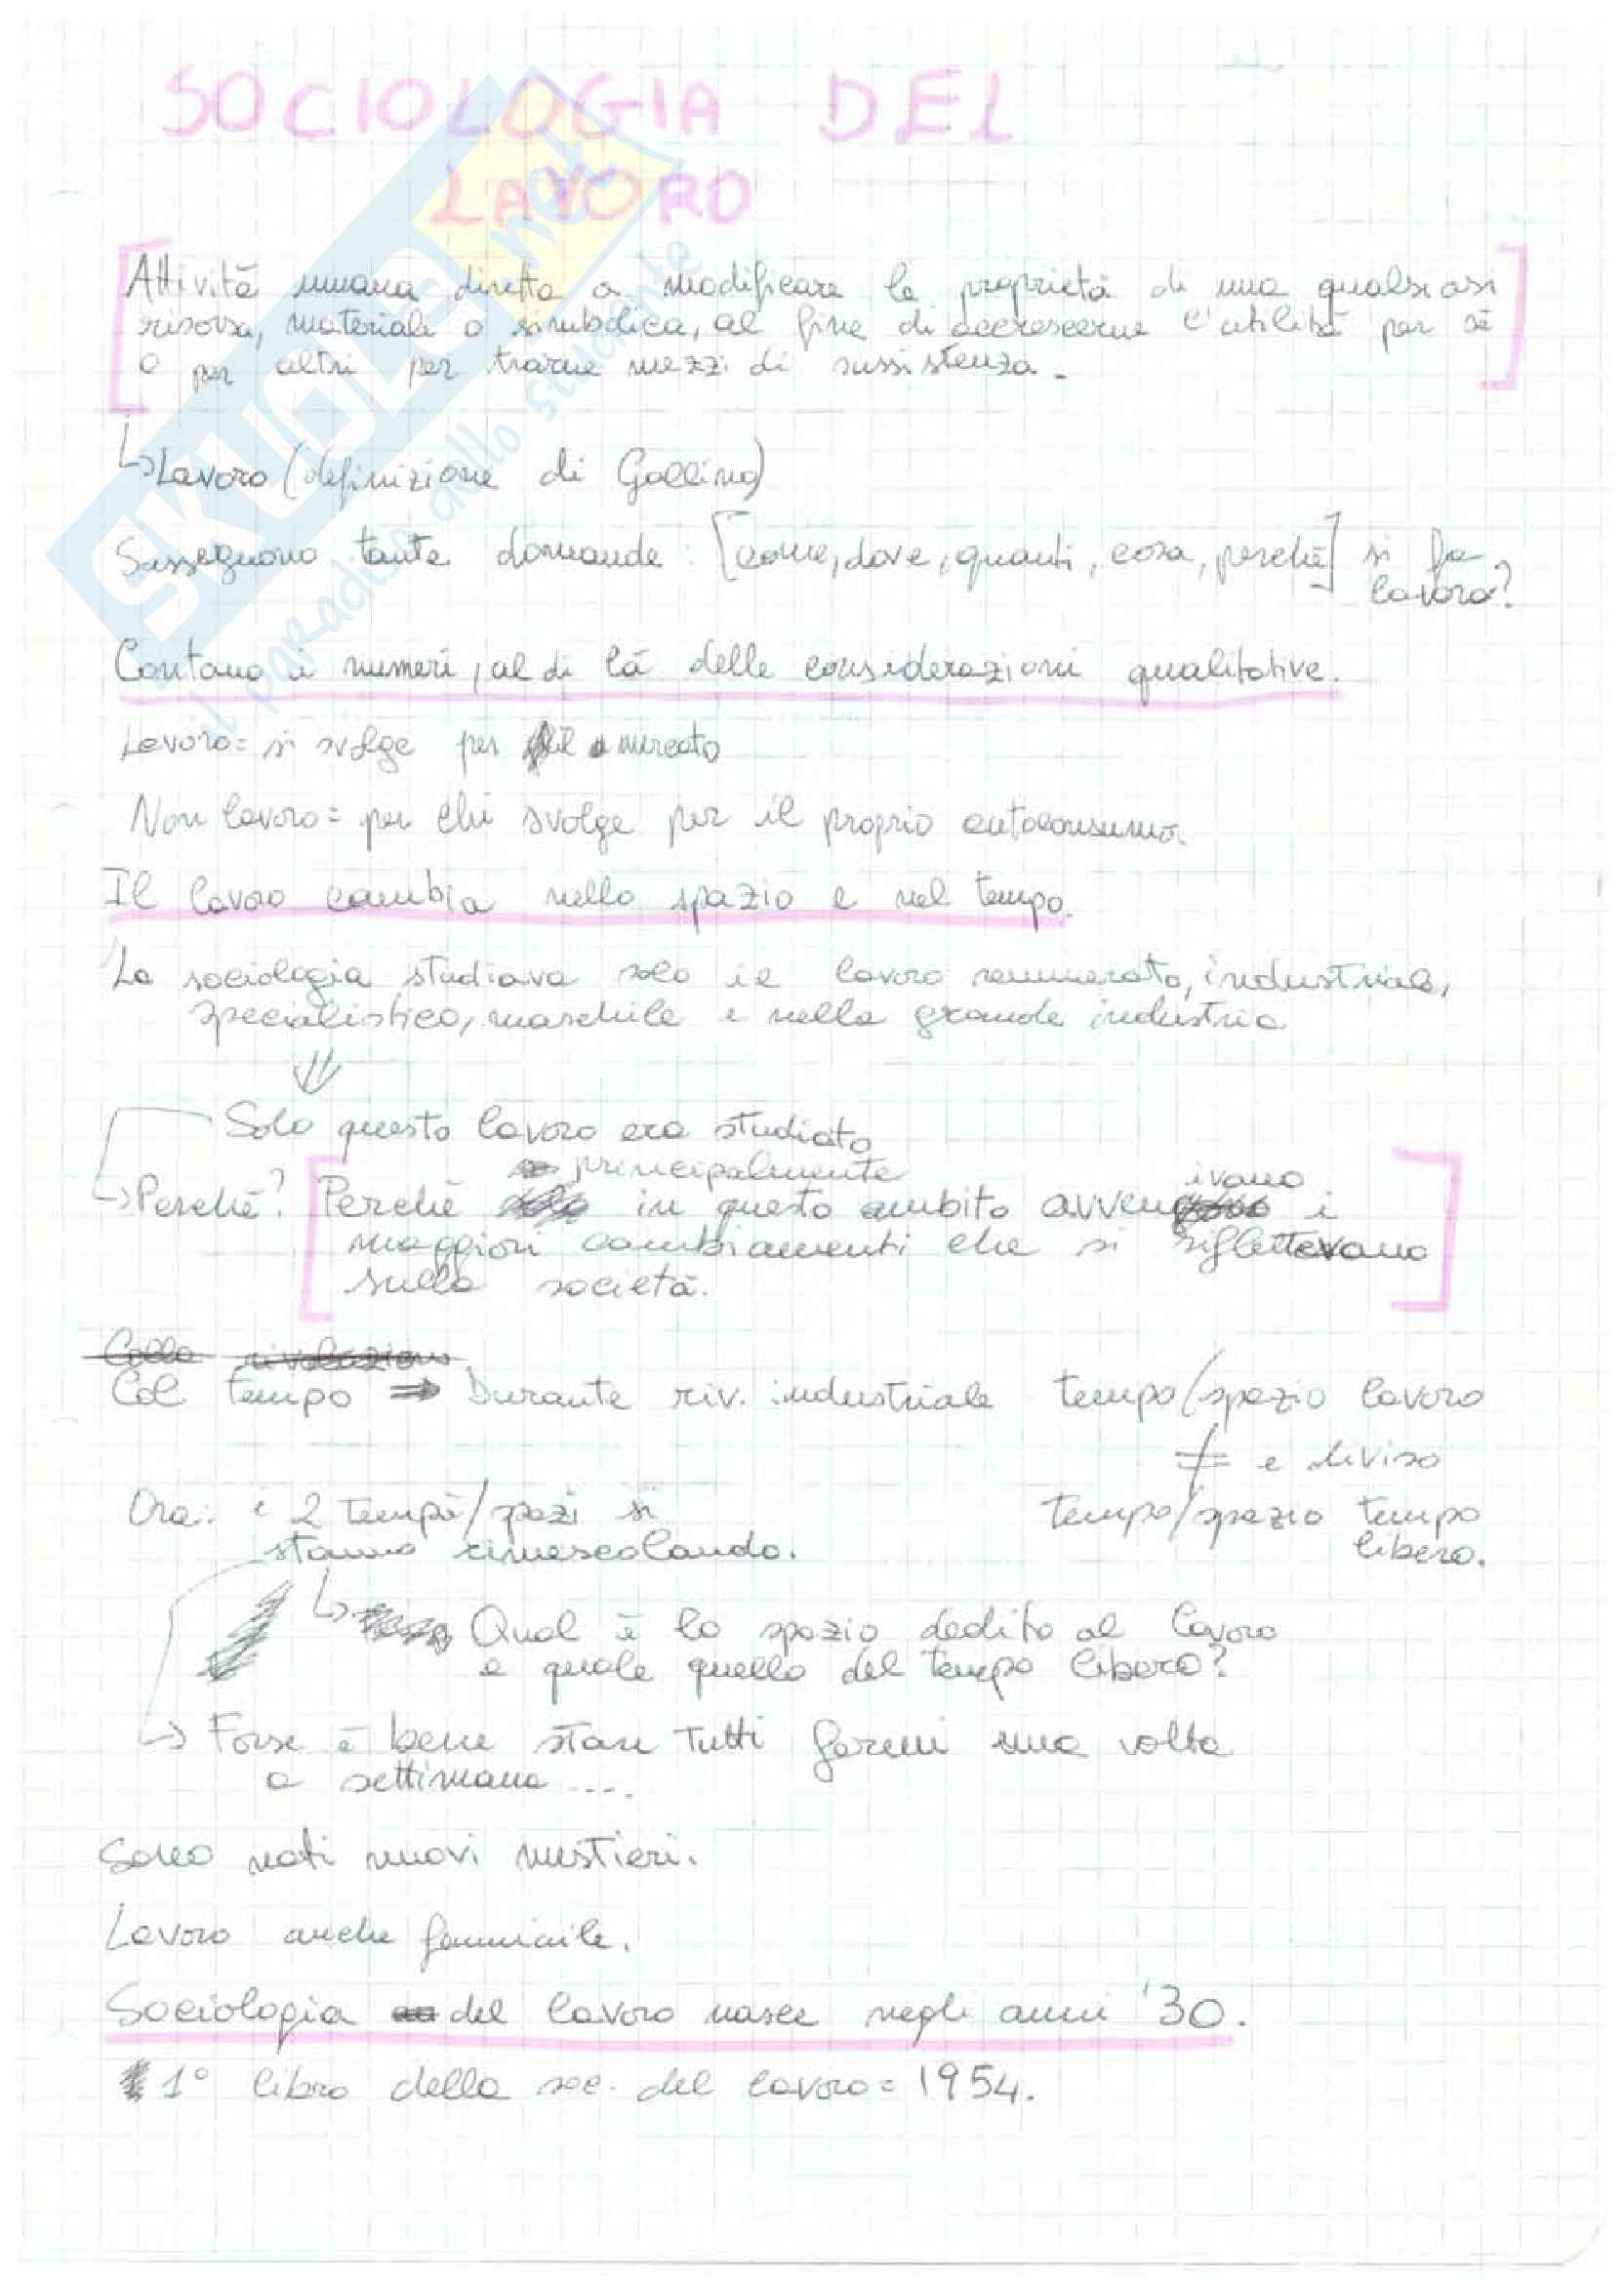 SOCIOLOGIA DEL
LAVORO
Attività umana diretta a modificare le proprietà di una qualsiasi
risorsa, materiale o simbolica, al fine di accrescerne l'utilità per sé
o per altri per trarne mezzi di sussistenza.
↳ Lavoro (definizione di Gallino)
Susseguono tante domande: [come, dove, quanti, cosa, perché] si fa
lavoro?
Contano i numeri, al di là delle considerazioni qualitative.
Lavoro = si svolge per il mercato
Non lavoro = per chi svolge per il proprio autoconsumo.
Il lavoro cambia nello spazio e nel tempo.
La sociologia studiava solo il lavoro remunerato, industriale,
specialistico, maschile e nella grande industria
⇓
Solo questo lavoro era studiato
principalmente ivano
→ Perché? Perché in questo ambito avven i
maggiori cambiamenti che si riflettevano
sulla società.
Colla rivoluzione
Col tempo ⇒ Durante riv. industriale tempo/spazio lavoro
≠ e diviso
Ora: i 2 tempi/spazi si tempo/spazio tempo
stanno rimescolando. libero.
↳ Qual è lo spazio dedito al lavoro
e quale quello del tempo libero?
→ Forse è bene stare tutti fermi una volta
a settimana ...
Sono nati nuovi mestieri.
Lavoro anche femminile.
Sociologia del lavoro nasce negli anni '30.
1° libro della soc. del lavoro = 1954.
SKUOLA.net
il paradiso dello studente